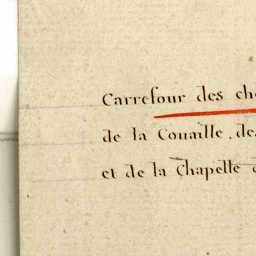 Carrefour des che
de la Couaille, de
et de la Chapelle